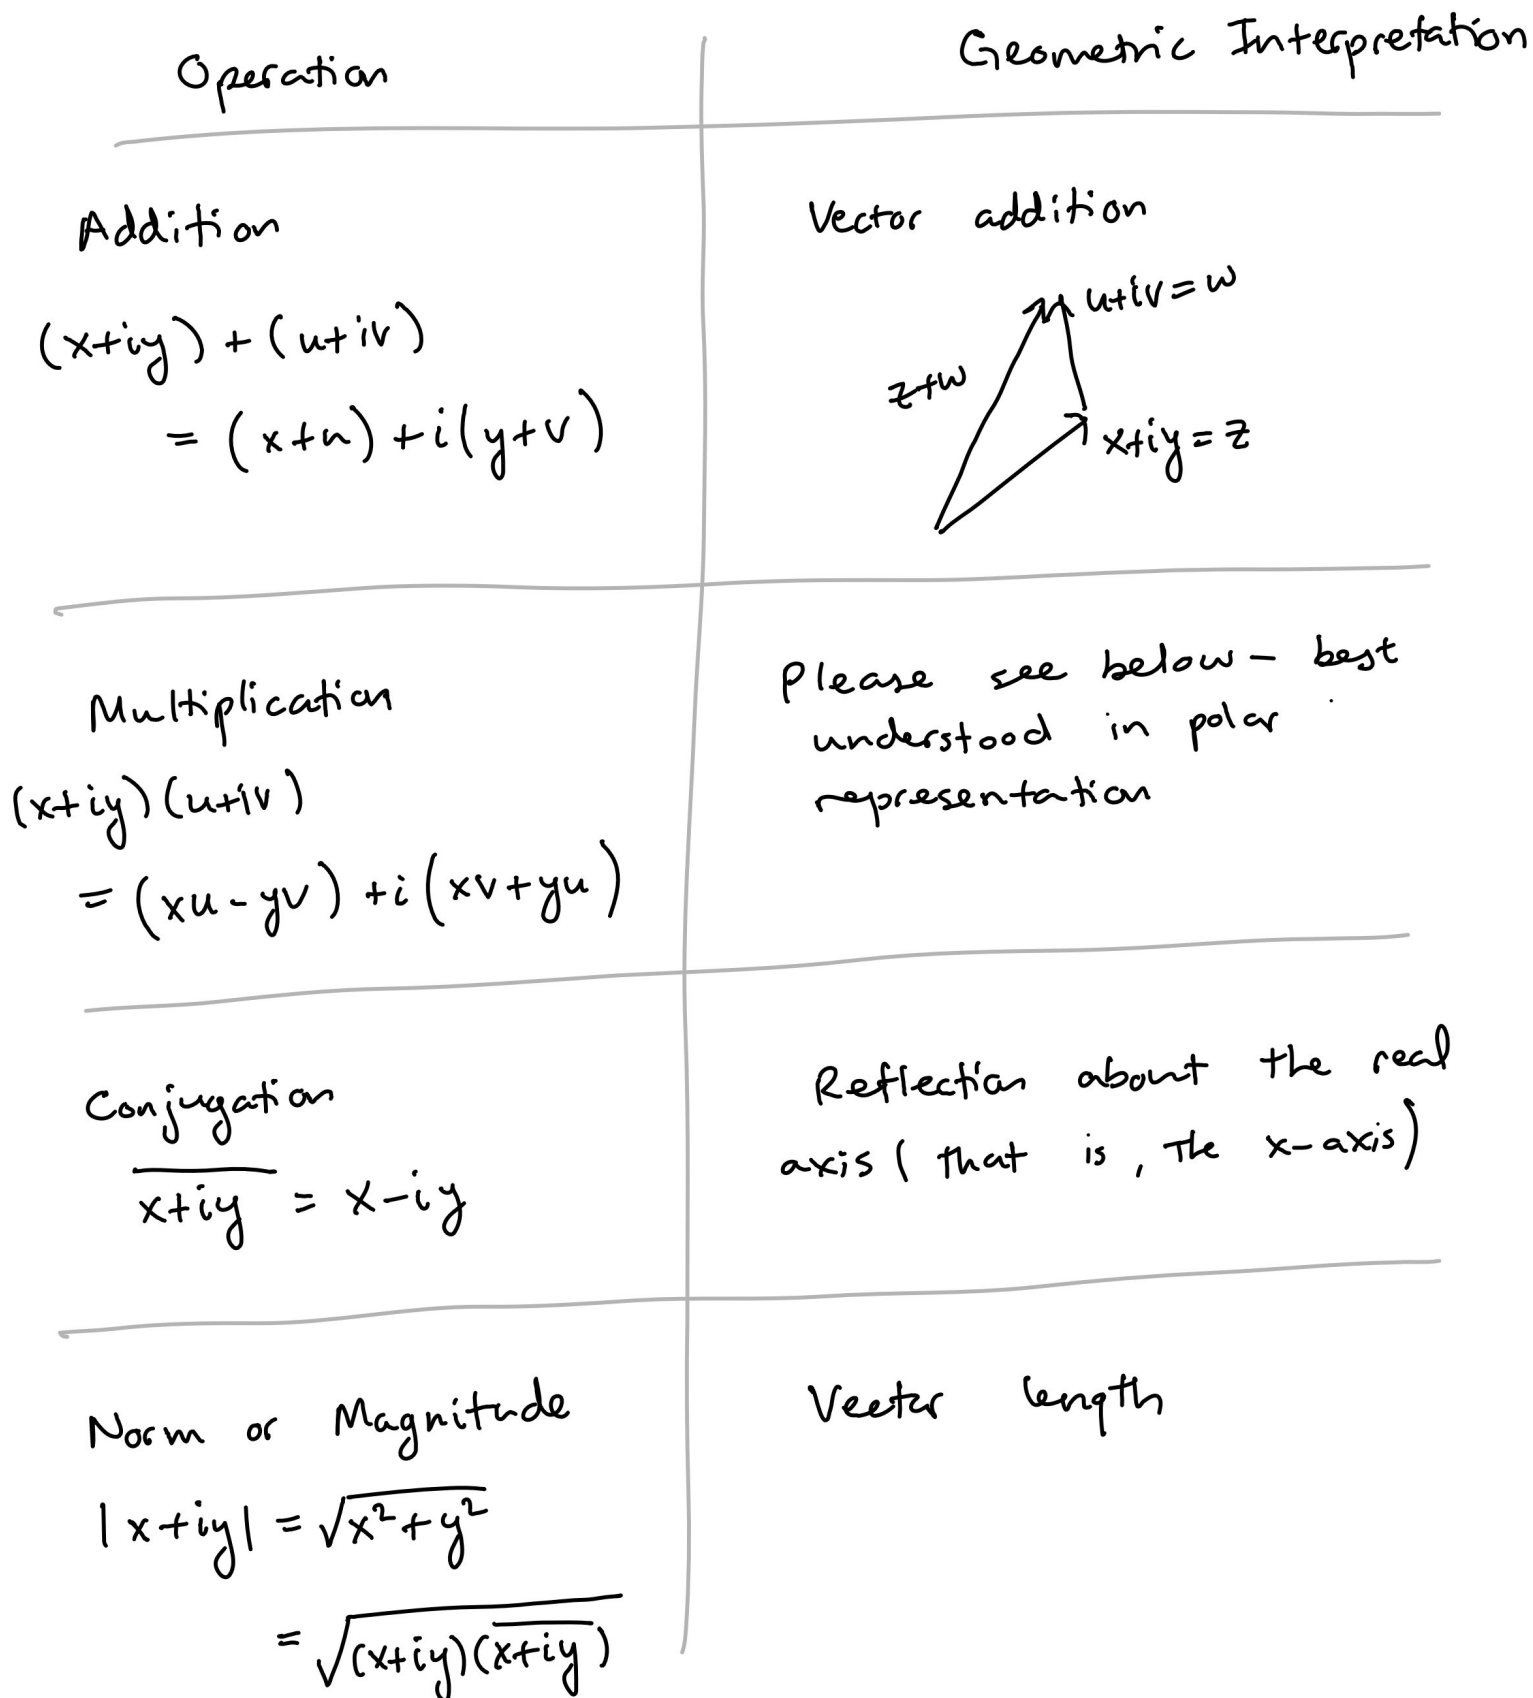 Operation
Geometric Interpretation
Addition
(x+iy) + (u+iv)
= (x+u) + i(y+v)
Vector addition
u+iv = w
z+w
x+iy = z
Multiplication
(x+iy)(u+iv)
= (xu-yv) + i(xv+yu)
Please see below – best
understood in polar
representation
Conjugation
x̅+̅i̅y̅ = x-iy
Reflection about the real
axis (that is, the x-axis)
Norm or Magnitude
|x+iy| = √(x²+y²)
= √((x+iy)(x̅+̅i̅y̅))
Vector length